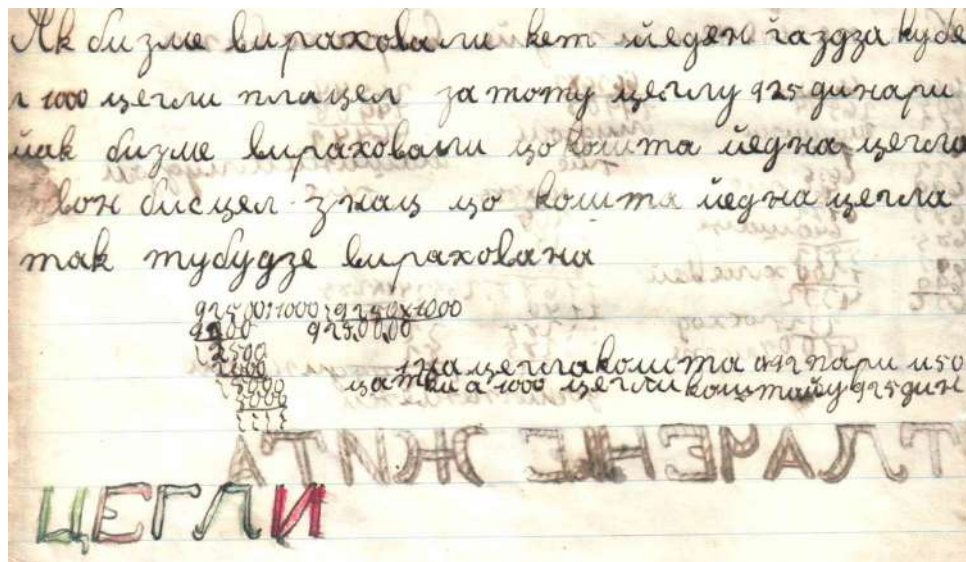 Як бизме вираховали кет йеден ґаздза купе
л 1000 цегли плацел за тоту цеглу 925 динари
йак бизме вираховали цо кошта йедна цегла
вон бисцел знац цо кошта йедна цегла
так тубудзе вирахована
92500:1000:9250x1000
9200 9250.00
2500
2000 1на цегла кошта 0.92 пари и 50
5000 цатки а 1000 цегли коштайу 925 дин
5000
ЦЕГЛИ